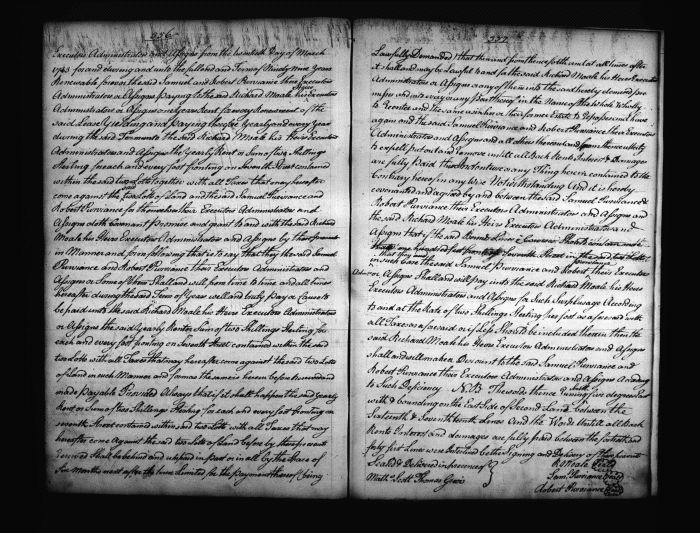 226
Executors Administrators and Assigns from the twentieth Day of March
1743 for and during and unto the full end and Term of Ninety Nine Years
Renewable forever the said Samuel and Robert Purviance their Executors
Administrators or Assigns paying to the said Richard Moale his Executors
Administrators or Assigns one Years Rent for every Renewment of the
said Lease Yielding and paying therefor Yearly and every Year
during the said Term unto the said Richard Moale his Heirs Executors
Administrators and Assigns the Yearly Rent or Sum of two Shillings
Sterling for each and every foot fronting on Seventh Street contained
within the said two Lotts together with all Taxes that may hereafter
come against the said two Lotts of Land and the said Samuel Purviance and
Robert Purviance for themselves their Executors Administrators and
Assigns doth Covenant Promise and grant to and with the said Richard
Moale his Heirs Executors Administrators and Assigns by these presents
in Manner and form following that is to say that they the said Samuel
Purviance and Robert Purviance their Executors Administrators and
Assigns or Some of them Shall and will from time to time and all times
hereafter during the said Term of Years well and truly pay or Cause to
be paid unto the said Richard Moale his Heirs Executors Administrators
or Assigns the said Yearly Rent or Sum of two Shillings Sterling for
each and every foot fronting on Seventh Street contained within the said
two Lotts with all Taxes that may hereafter come against the said two Lotts
of Land in such Manner and form as the same is herein before Reserved and
made payable Provided Always that if it shall happen the said yearly
Rent or Sum of two Shillings Sterling for each and every foot fronting on
Seventh Street contained within said two Lotts with all Taxes that may
hereafter come Against the said two Lotts of Land before by these presents
Reserved Shall be behind and unpaid in part or in all by the Space of
Six Months next after the time Limited for the payment thereof being
227
Lawfully Demanded that then and from thenceforth and at all times after
it shall and may be lawful to and for the said Richard Moale his Heirs Executors
Administrators or Assigns or any of them into the said hereby demised pre-
mises and into any part thereof in the Name of the whole Wholly
to Reenter and the same as in his or their former Estate to Repossess and have
again and the said Samuel Purviance and Robert Purviance their Executors
Administrators and Assigns and all others thereout and from thence utterly
to expell put out and Remove untill all Back Rents Interest & Damages
are fully paid this Indenture or any Thing herein contained to the
Contrary hereof in any Wise Notwithstanding And it is hereby
covenanted and agreed by and between the said Samuel Purviance &
Robert Purviance their Executors Administrators and Assigns and
the said Richard Moale his Heirs Executors Administrators and
Assigns that if the said
in such case the said Samuel Purviance and Robert their Executors
Admrs or Assigns Shall and will pay unto the said Richard Moale his Heirs
Executors Administrators and Assigns for Such Surplusage According
to and at the Rate of two Shillings Sterling per foot as aforesaid with
all Taxes as aforesaid or if Less Shou'd be included therein then the
said Richard Moale his Heirs Executors Administrators and Assigns
shall and will make Discount to the said Samuel Purviance and
Robert Purviance their Executors Administrators and Assigns According
to Such Deficiency N.B. The words thence Running five degrees East
with & bounding on the East Side of Second Land between the
Sixteenth & Seventeenth Lines And the Words Untill all Back
Rents Interest and damages are fully paid between the fortieth and
forty first Lines were Interlined before Signing and Delivery of these presents
Sealed & Delivered in presence of
Rd Moale Seal
Saml Purviance Seal
Scott Thomas
Robert Purviance Seal